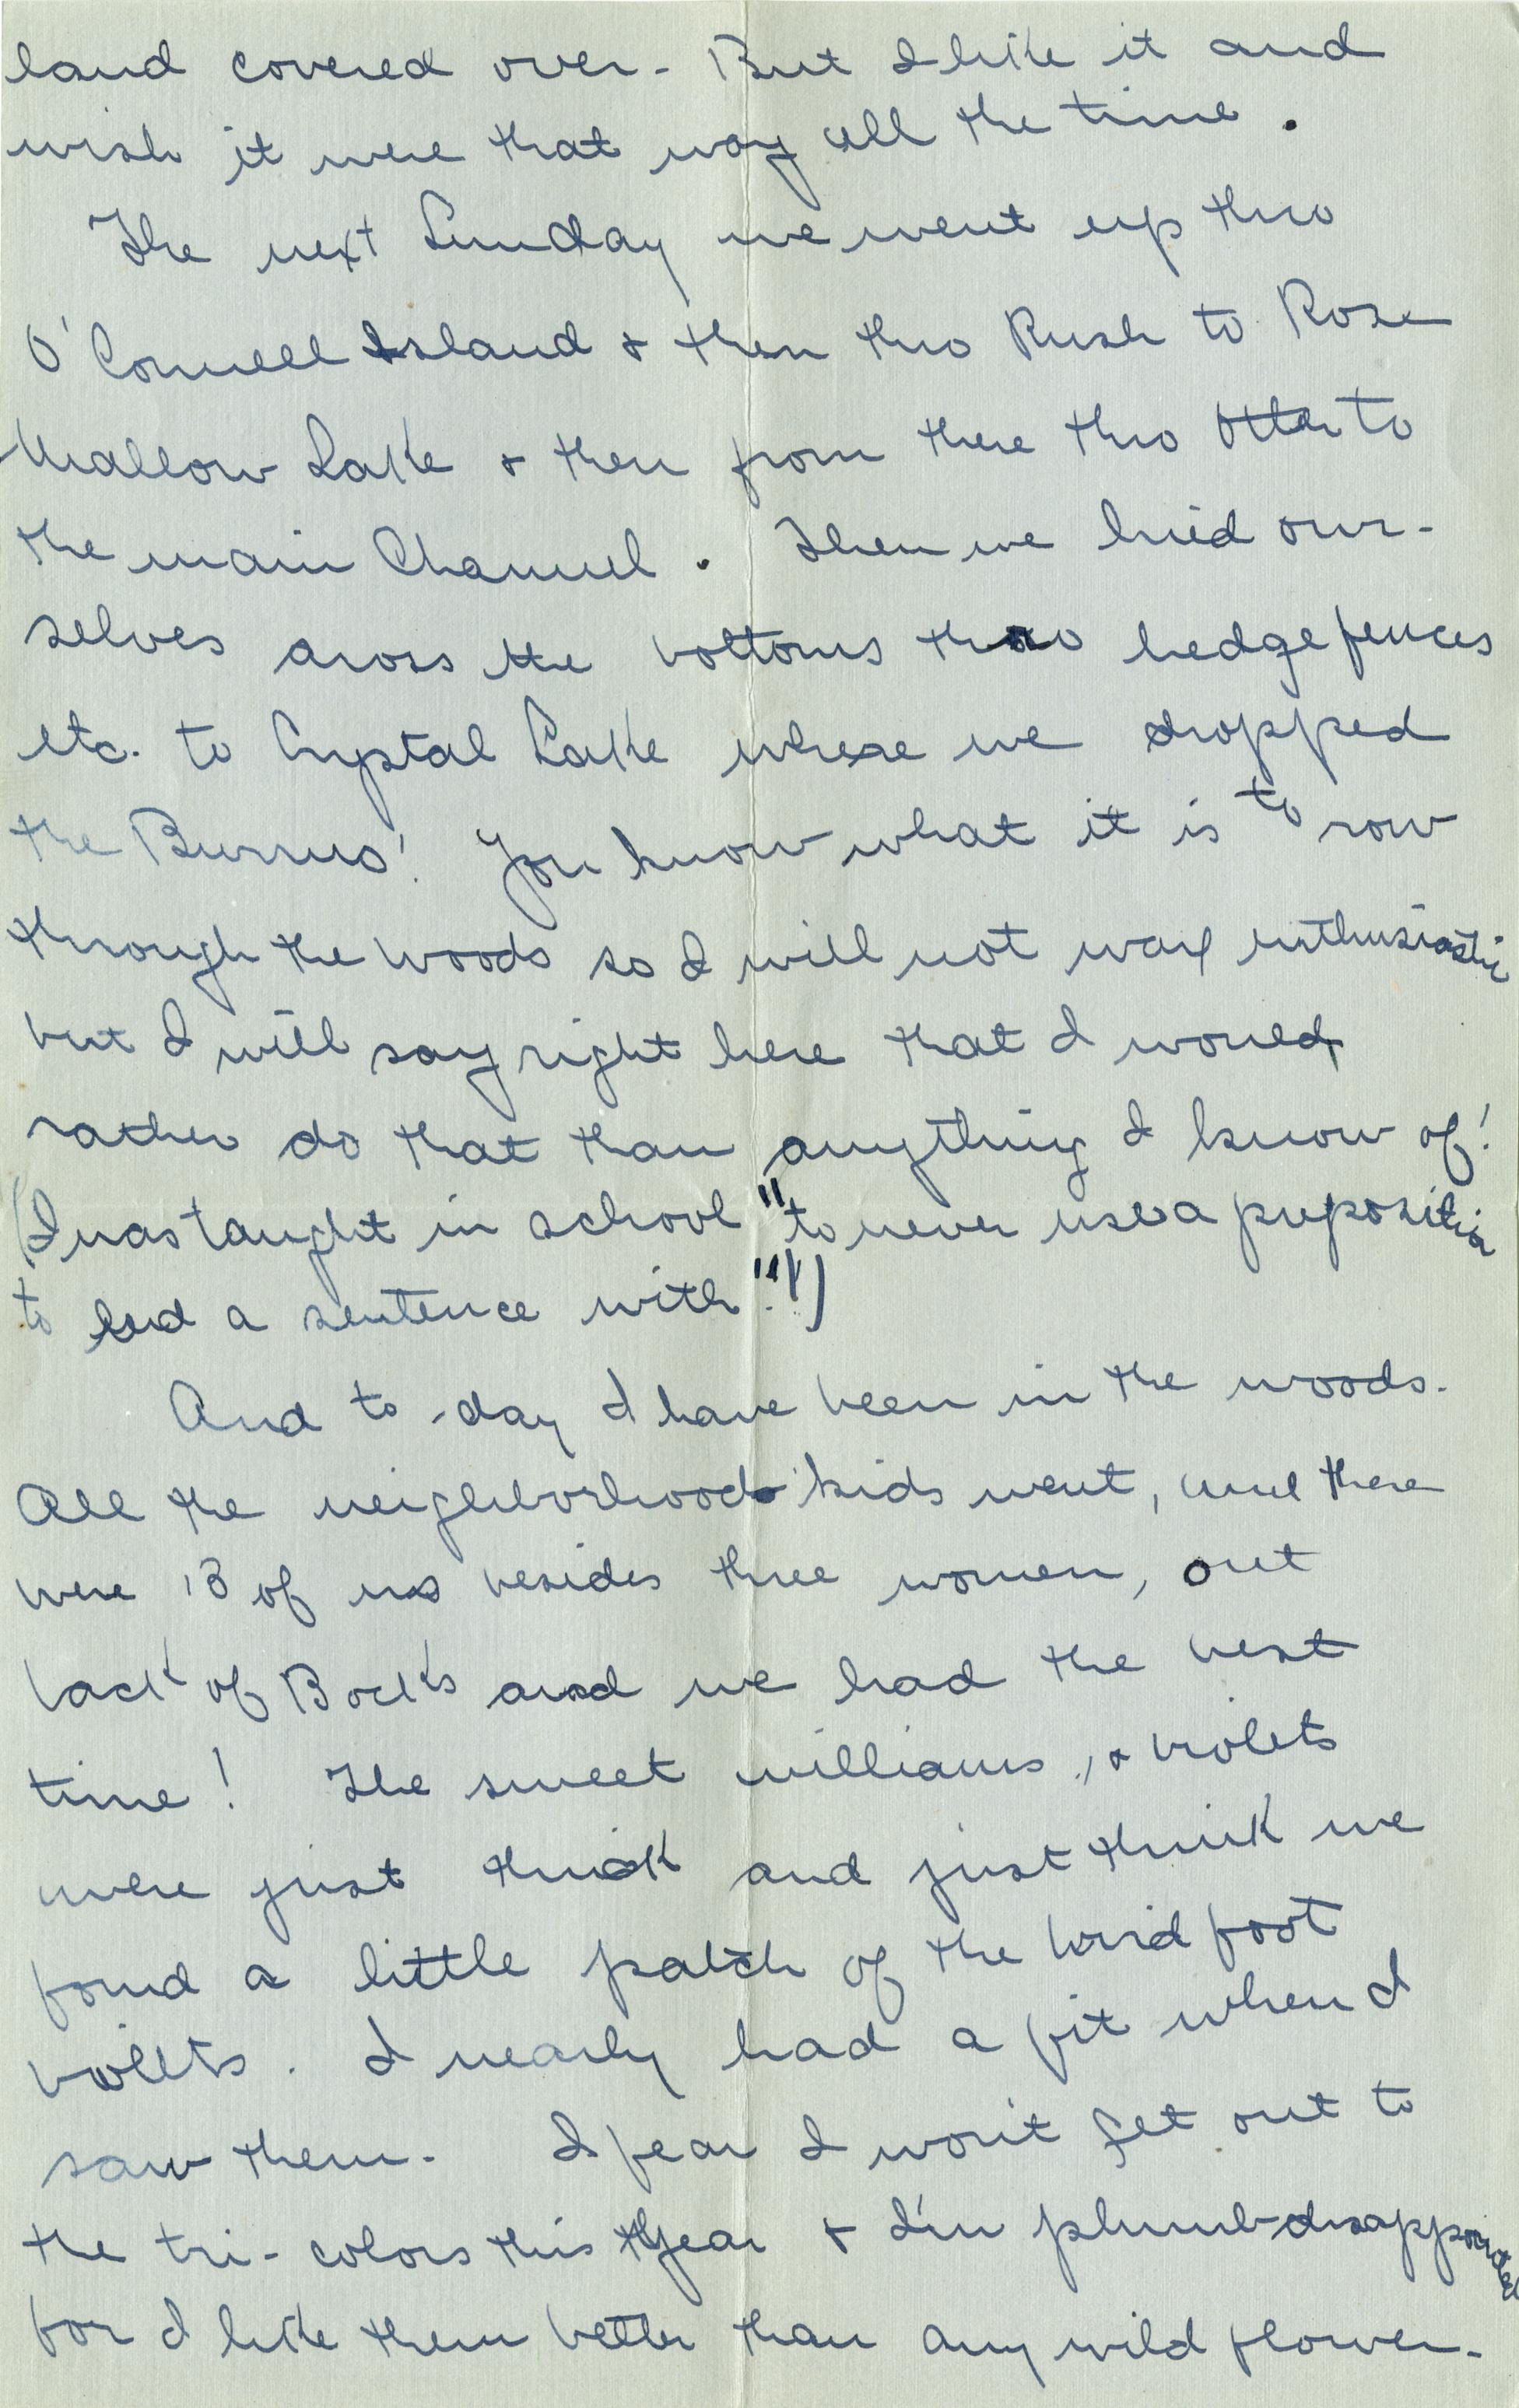 land covered over - But I like it and
wish it were that way all the time.
The next Sunday we went up thro
O'Connell Island & then thro Rush to Rose
Mallow Lake & then from there thro Otter to
the main Channel. Then we hied our-
selves aross the bottoms thro hedge fences
etc. to Crystal Lake where we dropped
the Burrus'! You know what it is to row
through the woods so I will not wax enthusiastic
but I will say right here that I would
rather do that than anything I know of!
(I was taught in school "to never use a preposition
to end a sentence with"!!)
And to-day I have been in the woods.
All the neighborhood kids went, and there
were 13 of us besides three women, out
back of Bock's and we had the best
time! The sweet williams, & violets
were just thick and just think we
found a little patch of the bird foot
voilets. I nearly had a fit when I
saw them. I fear I won't get out to
the tri-colors this year & I'm plumb disappointed
for I like them better than any wild flower.